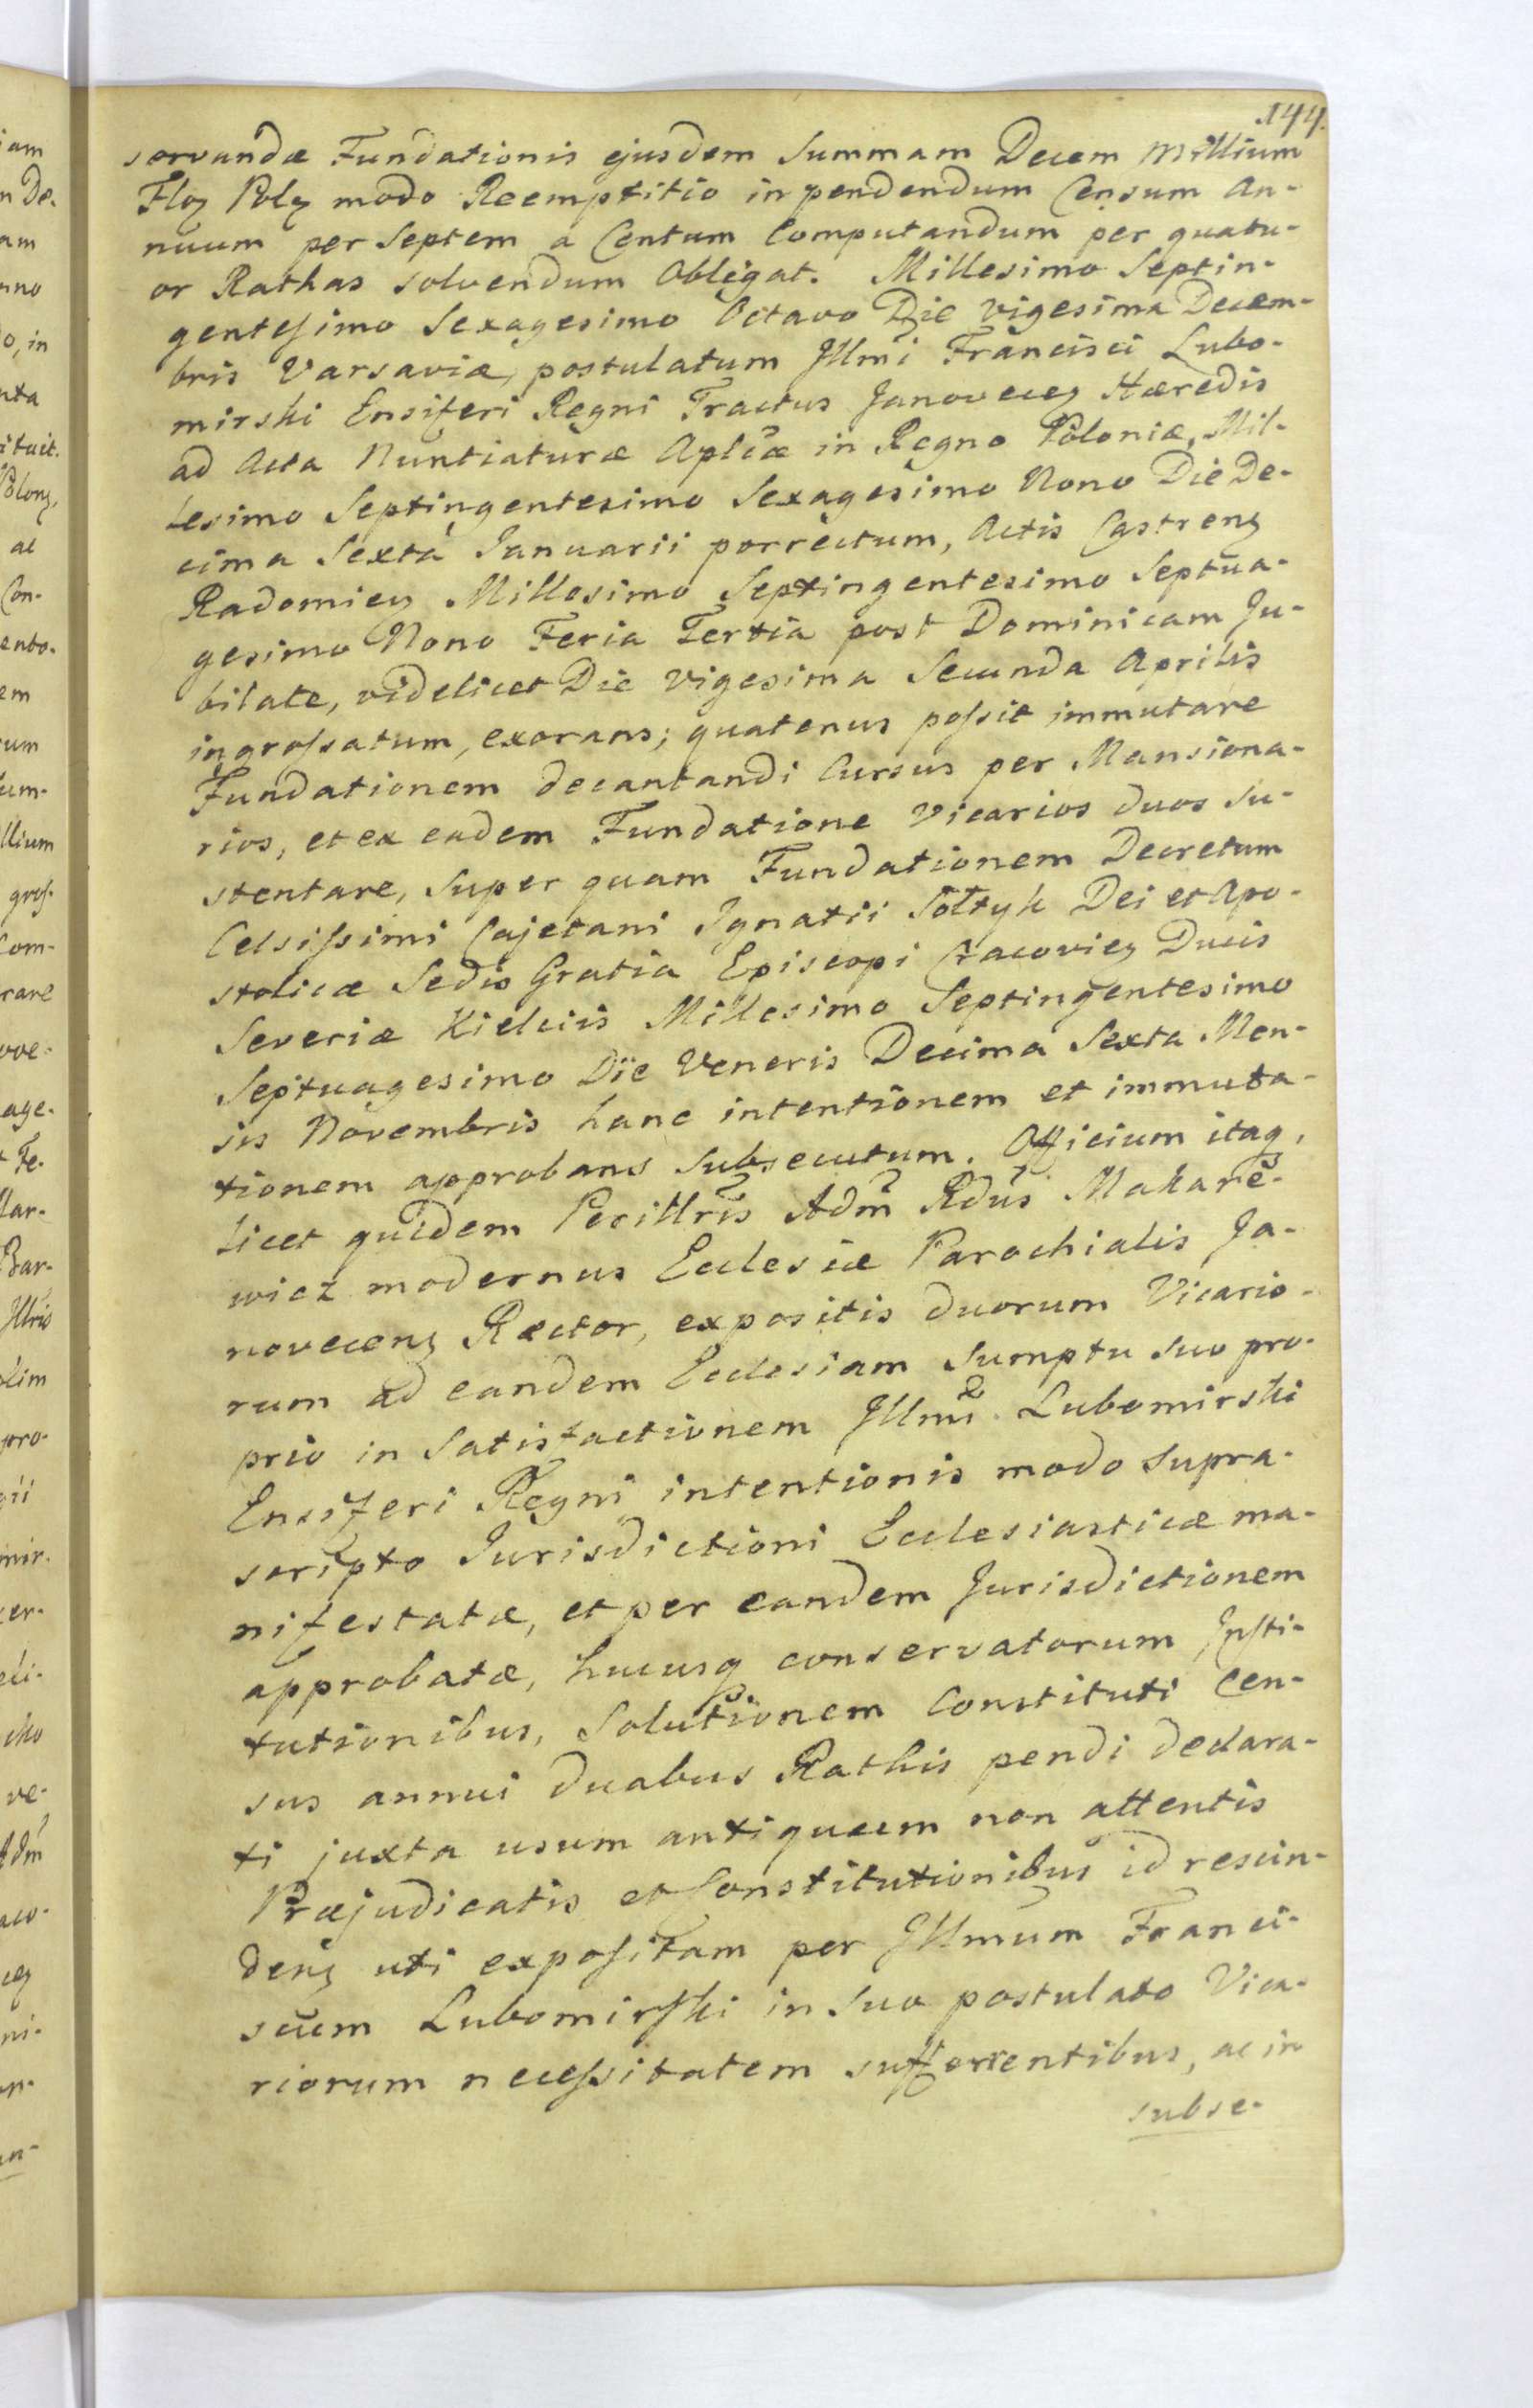 144.
servandæ Fundationis ejusdem Summam Decem Millium
Floꝫ Polꝫ modo Reemptitio in pendendum Censum An-
nuum per Septem a Centum Computandum per quatu-
or Rathas solvendum Obligat. Millesimo Septin-
gentesimo Sexagesimo Octavo Die vigesima Decem-
bris Varsaviæ, postulatum Illm̃i Francisci Lubo-
mirski Ensiferi Regni Tractus Janoveceꝫ Hæredis
ad Acta Nuntiaturæ Aplicæ in Regno Poloniæ, Mil-
lesimo Septingentesimo Sexagesimo Nono Die De-
cima Sexta Januarii porrectum, Actis Castrenꝫ
Radomieꝫ Millesimo Septingentesimo Septua-
gesimo Nono Feria Tertia post Dominicam Ju-
bilate, videlicet Die Vigesima Secunda Aprilis
ingrossatum, exorans; quatenus possit immutare
Fundationem decantandi Cursus per Mansiona-
rios, et ex eadem Fundatione Vicarios duos su-
stentare, Super quam Fundationem Decretum
Celsissimi Cajetani Ignatii Sołtyk Dei et Apo-
stolicæ Sedis Gratia Episcopi Cracovieꝫ Ducis
Severiæ Kielciis Millesimo Septingentesimo
Septuagesimo Die Veneris Decima Sexta Men-
sis Novembris hanc intentionem et immuta-
tionem approbans Subsecutum. Officium itaqꝫ,
licet quidem Perillris Adm̃ Rdus Makare-
wicz modernus Ecclesiæ Parochialis Ja-
novecenꝫ Rector, expositis duorum Vicario-
rum ad eandem Ecclesiam Sumptu suo pro-
prio in Satisfactionem Illm̃i Lubomirski
Ensiferi Regni intentionis modo supra-
scripto Jurisdictioni Ecclesiasticæ ma-
nifestatæ, et per eandem Jurisdictionem
approbatæ, hucusqꝫ conservatorum Insti-
tutionibus, Solutionem Constituti Cen-
sus annui duabus Rathis pendi declara-
ti juxta usum antiquum non attentis
Præjudicatis et Constitutionibus id rescin-
denꝫ uti expositam per Illmum Franci-
scum Lubomirski in Suo postulato Vica-
riorum necessitatem sufferrentibus, ac in
subse-
iam
n De-
am
nno
o, in
uxta
ituit.
Polonꝫ,
ac
Con-
ento-
em
rum
um-
llium
gros-
Com-
rare
ove-
age-
t Fe-
Mar-
Bar-
Illris
olim
pro-
gii
mir-
cer-
eli-
cko
ve-
Adm̃
aco-
ceꝫ
ni-
on-
an-